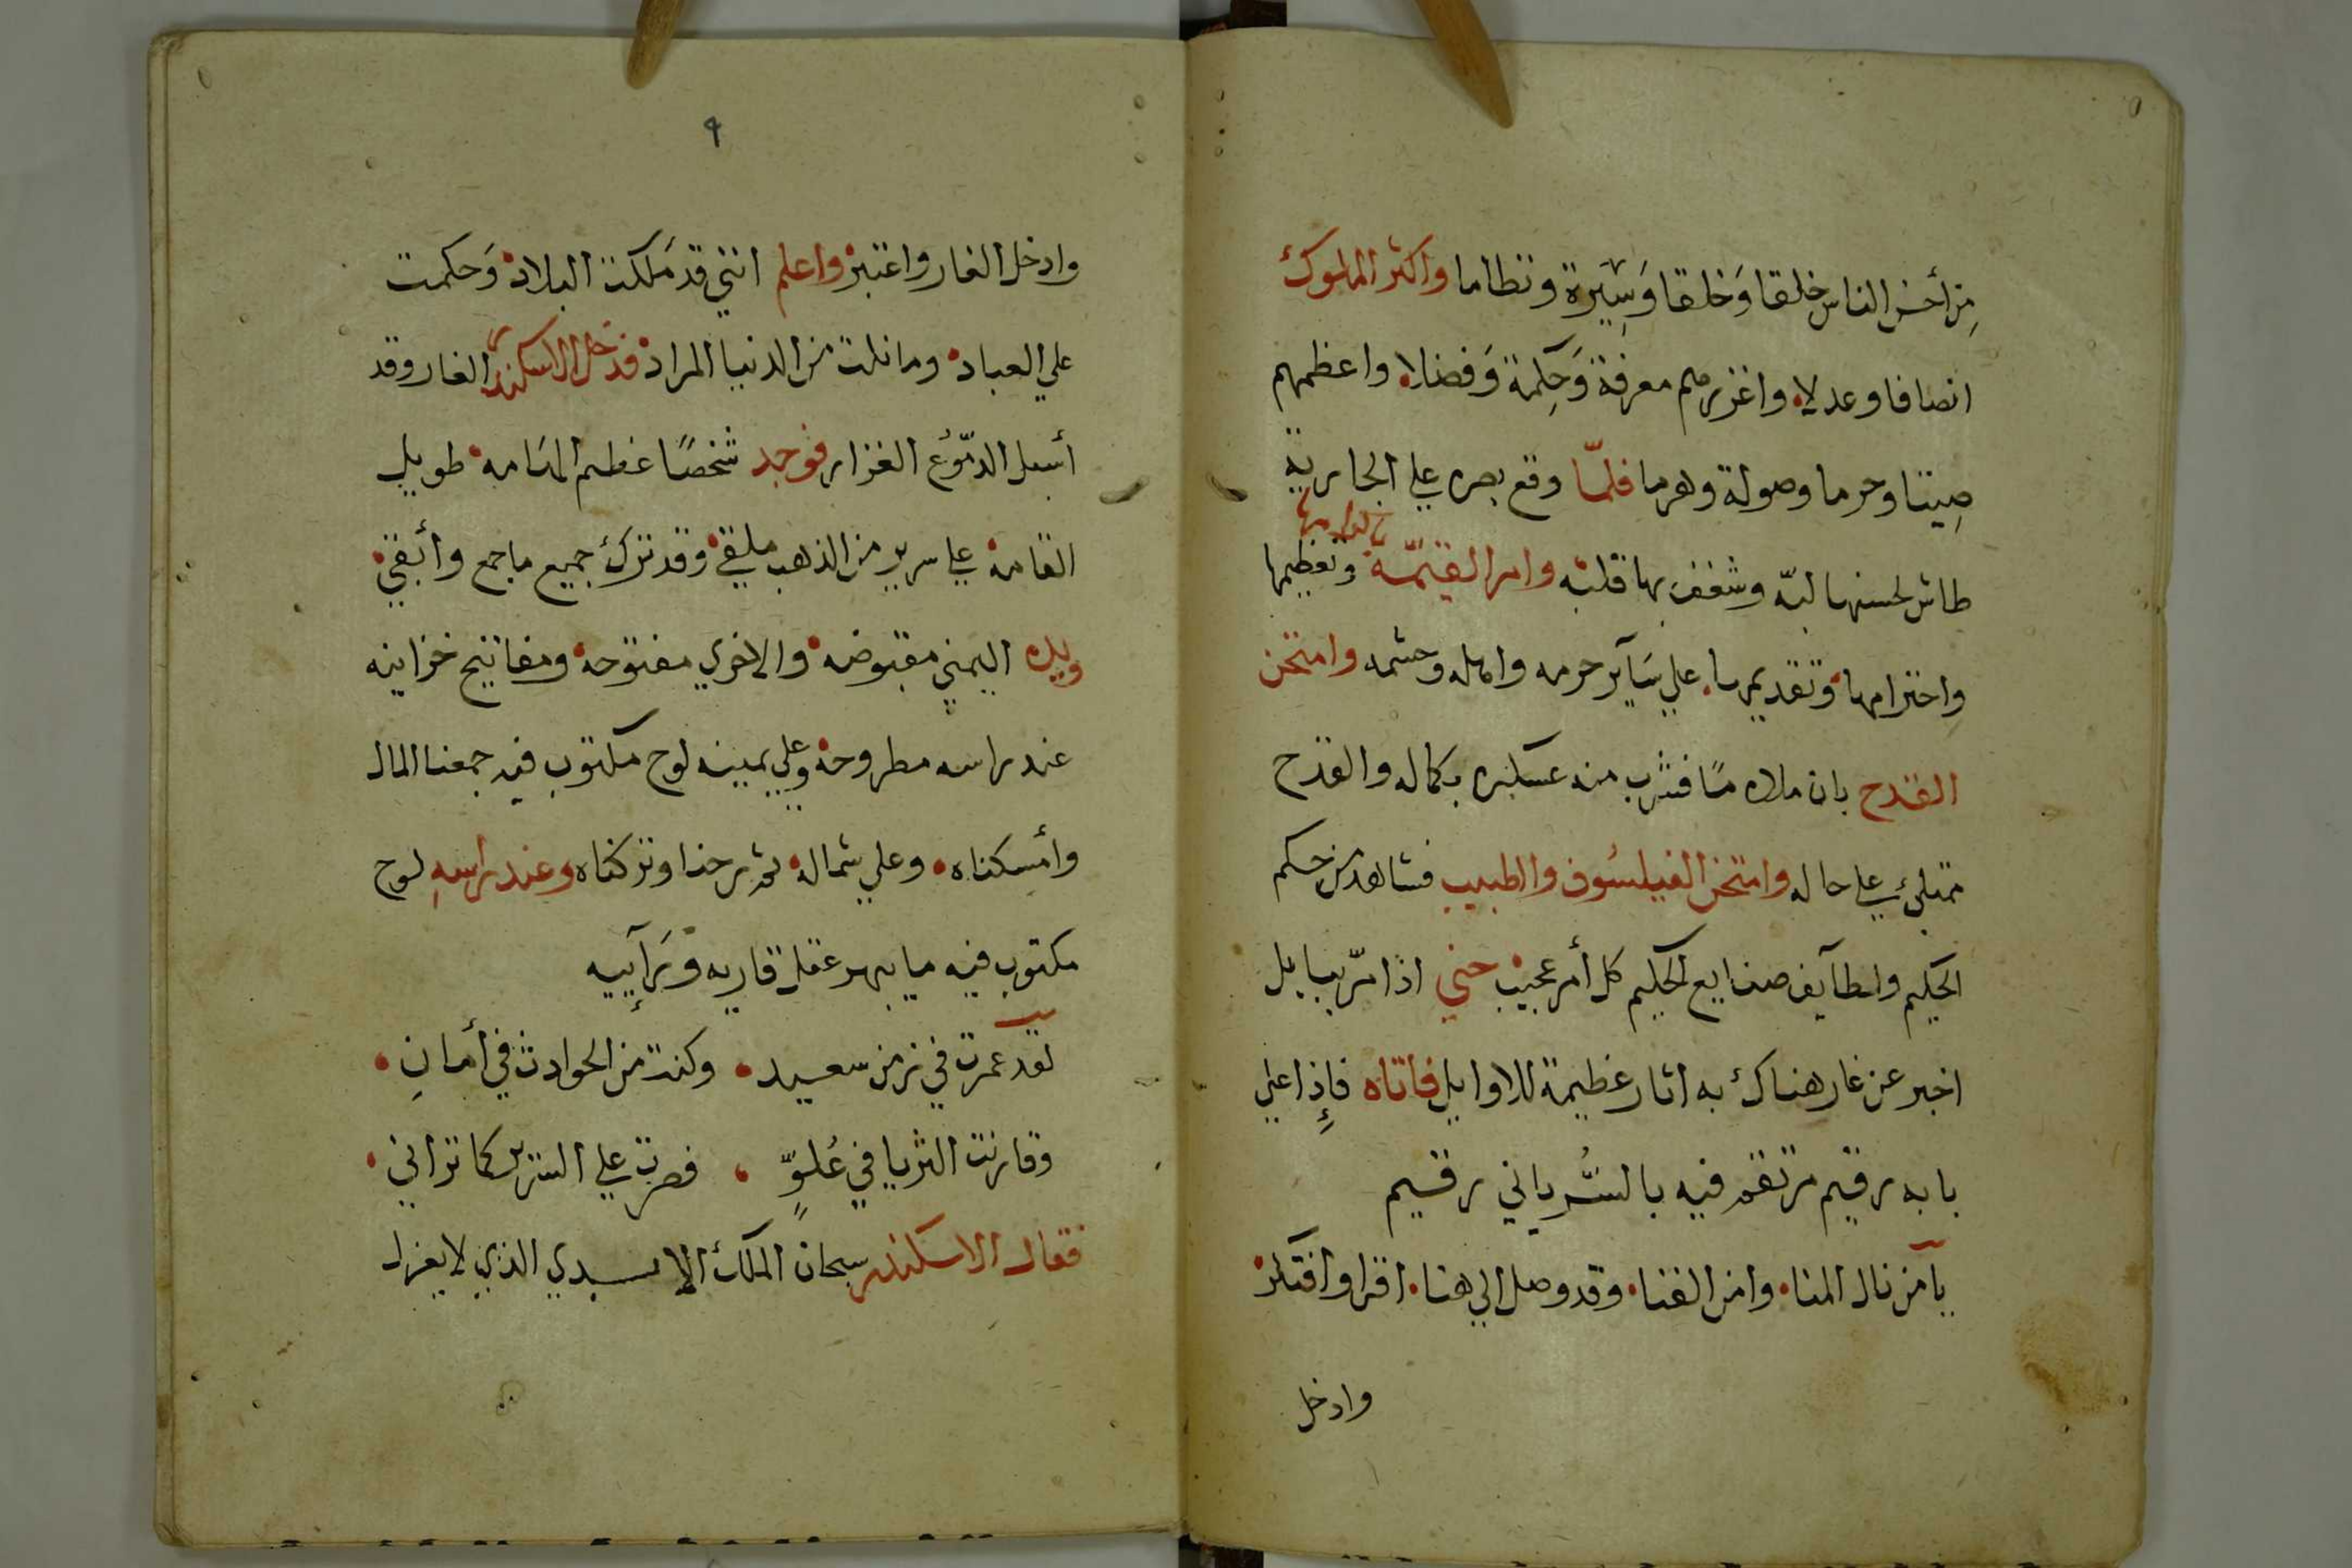 من أحسن الناس خلقا وَخلقا وَسِيَرة ونظاما واكثر الملوك
انصافا وعدلا واغزرهم معرفة وَحِكمة وَفضلا واعظمهم
صِيتا وحرما وصولة وهرما فلمّا وقع بصره علي الجارية
طاش لحسنها لبّه وشغف بها قلبه وامر القيّمة وتعظيمها
واحترامها وتقديمها علي سَآير حرمه وامله وحشمه وامتحن
القدح بان ملاه مًا فشرب منه عسكره بكماله والقدح
ممتلئ علي حاله وامتحن الفيلسُوف والطبيب فشاهد من حكم
الحكيم ولطآيف صنايع الحكيم كل أمر عجيب حتي اذا مرّ ببابل
اخبر عن غار هناك به اثار عظيمة للاوايل فاتاه فإذا علي
بابه رقيم مرتقم فيه بالسُّرياني رقيم
يآمن نال المنا وامن الفنا وقد وصل الي هنا اقرا وافتكر
وادخل
٩
وادخل الغار واعتبر واعلم انني قد مَلكت البلاد وَحكمت
علي العباد وما نلت من الدنيا المراد فدخل الاسكندر الغار وقد
أسبل الدمّوُع الغزار فوجد شخصًا عظيم الهَامه طويل
القامة علي سرير من الذهب ملقي وقد ترك جميع ما جمع وأبقي
ويده اليمني مقبوضه والاخري مفتوحة ومفاتيح خزاينه
عند راسه مطروحة وعلي يمينه لوح مكتوب فيه جمعنا المال
وأمسكناه وعلي شماله ثم رحنا وتركناه وعند راسهِ لوح
مكتوب فيه ما يبهر عقل قاريه وَرَآييه
لقد عمرت في زمن سعيد وكنت من الحوادث في أمانِ
وقارنت الثريا في عُلوٍّ فصرت علي السرير كما تراني
فقال الاسكندر سبحان الملك الابدي الذي لا يعزل